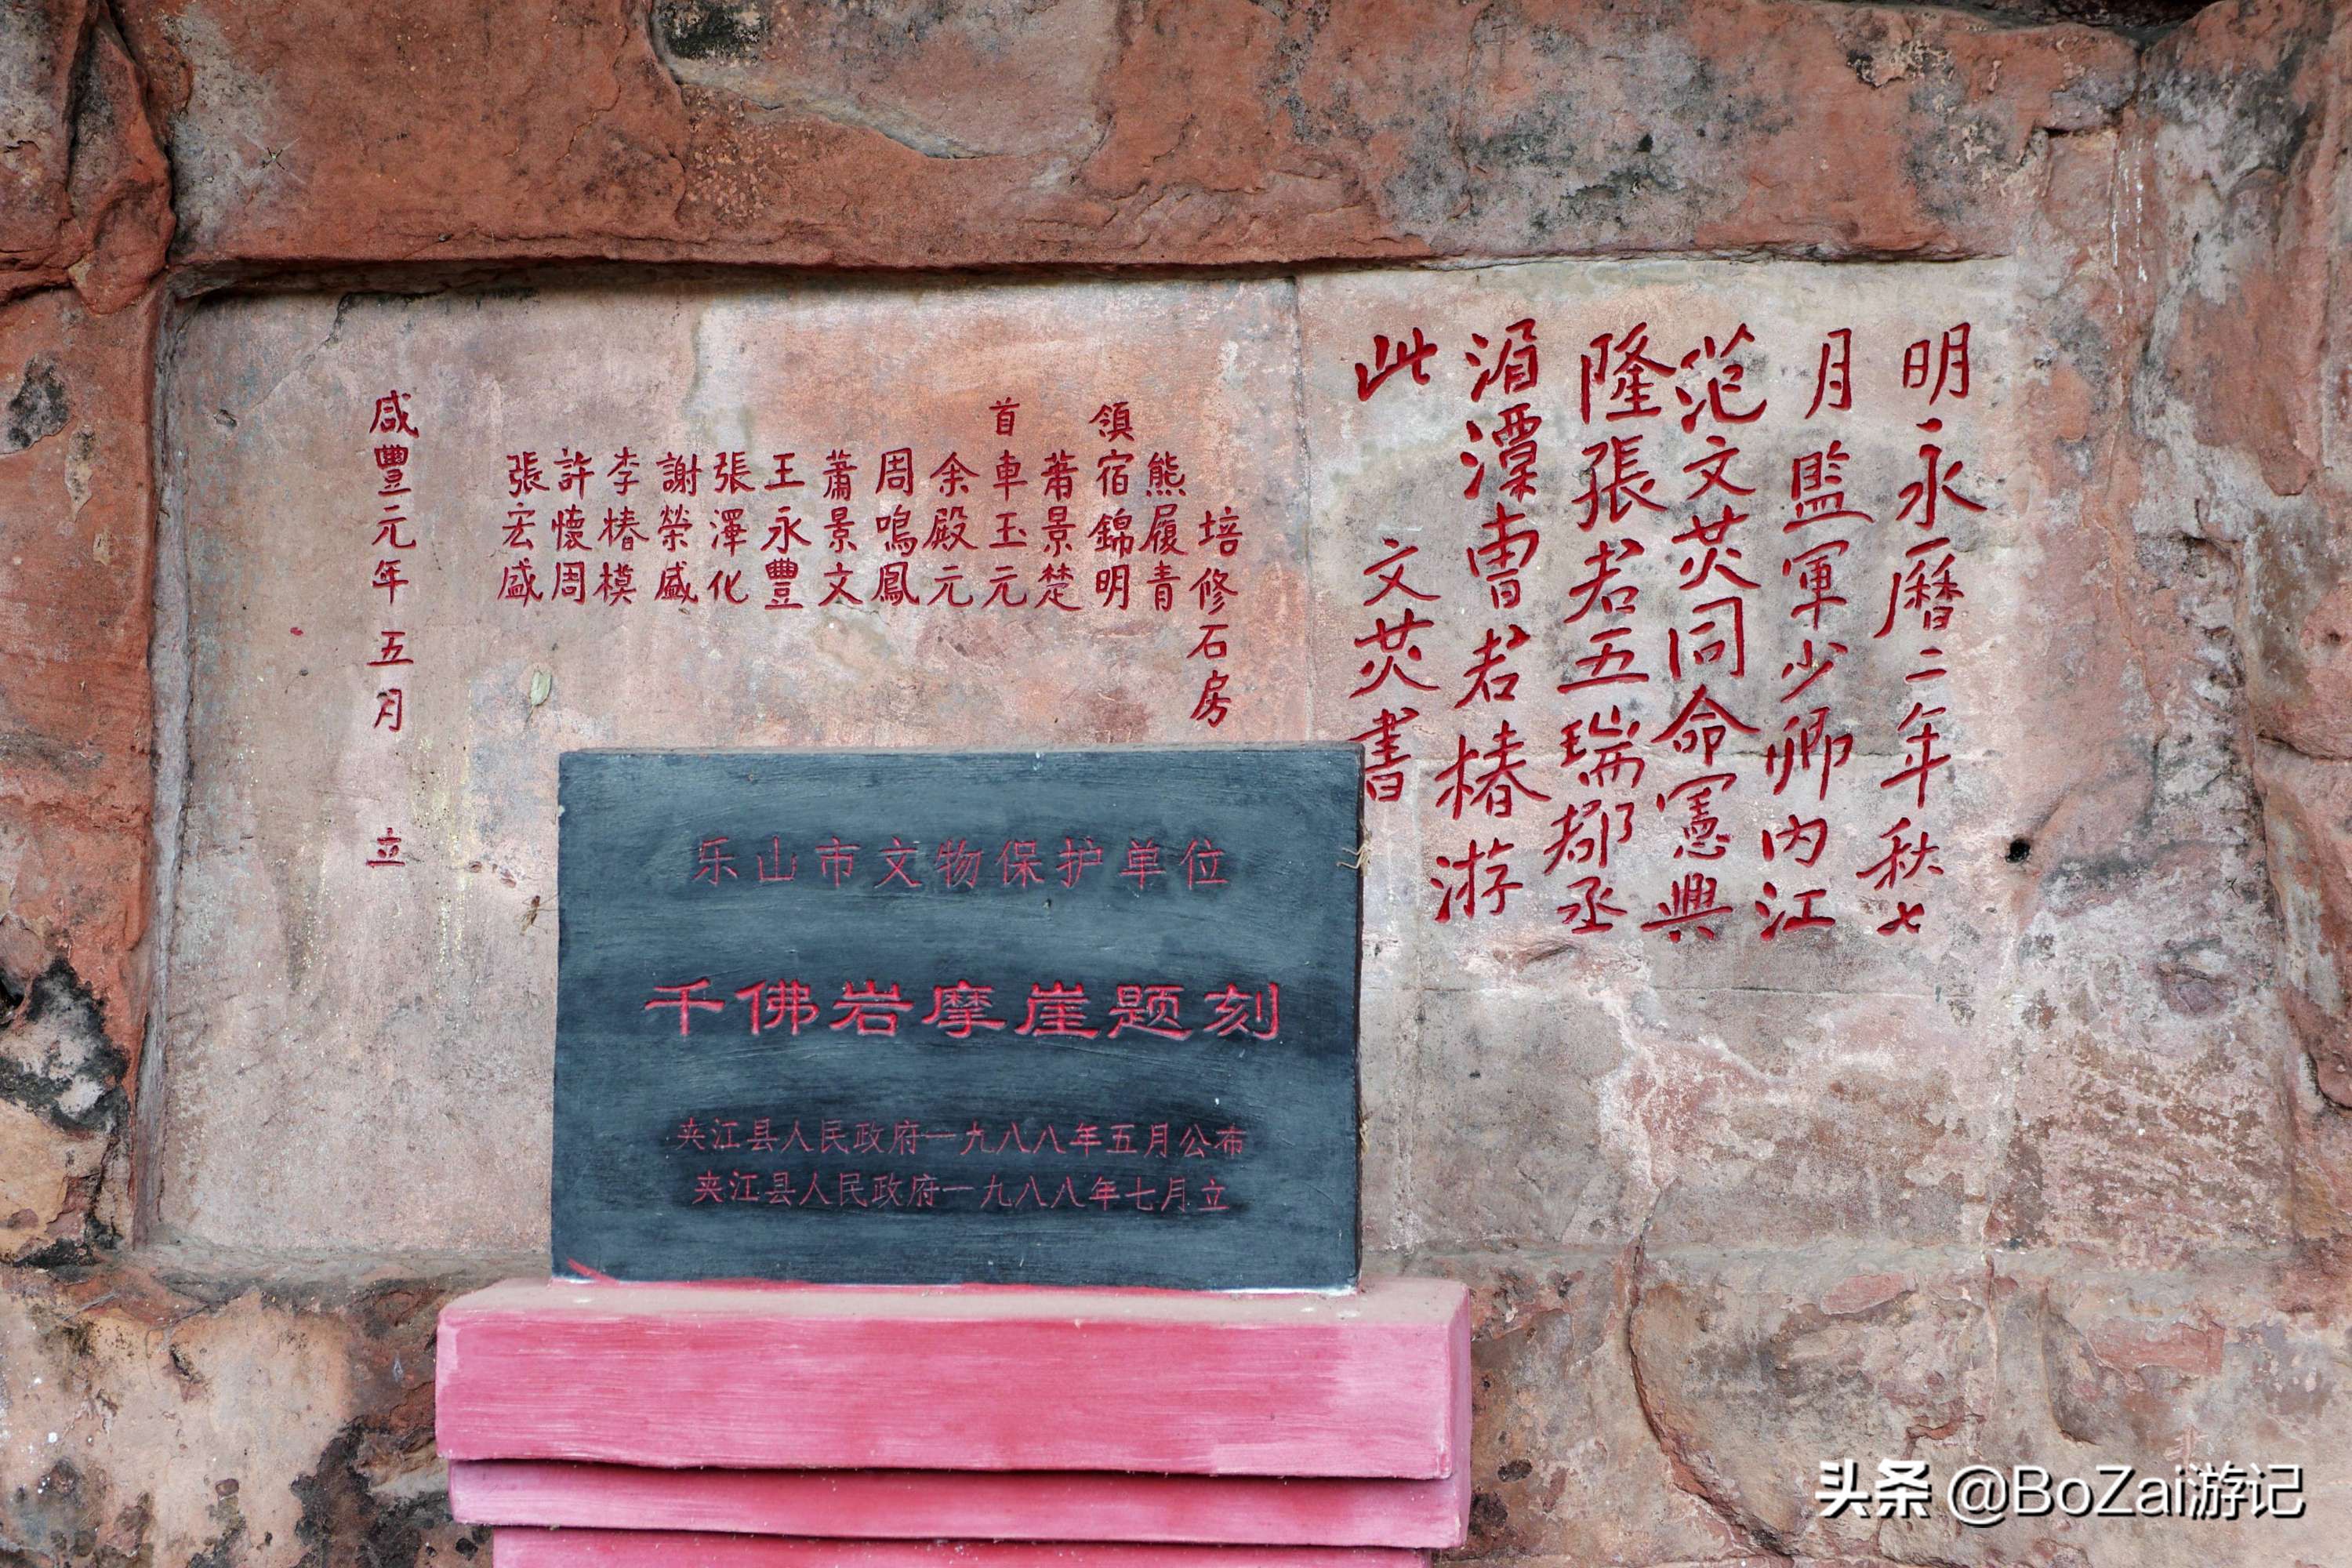 明永曆二年秋七
月監軍少卿內江
范文茨同命憲興
隆張君五瑞郡丞
湄潭曹君椿游
此
文茨書
培修石房
領
首
熊履青
宿錦明
莆景楚
車玉元
余殿元
周鳴鳳
蕭景文
王永豐
張澤化
謝榮盛
李椿模
許懷周
張宏盛
咸豐元年五月 立
乐山市文物保护单位
千佛岩摩崖题刻
夹江县人民政府一九八八年五月公布
夹江县人民政府一九八八年七月立
头条 @BoZai游记